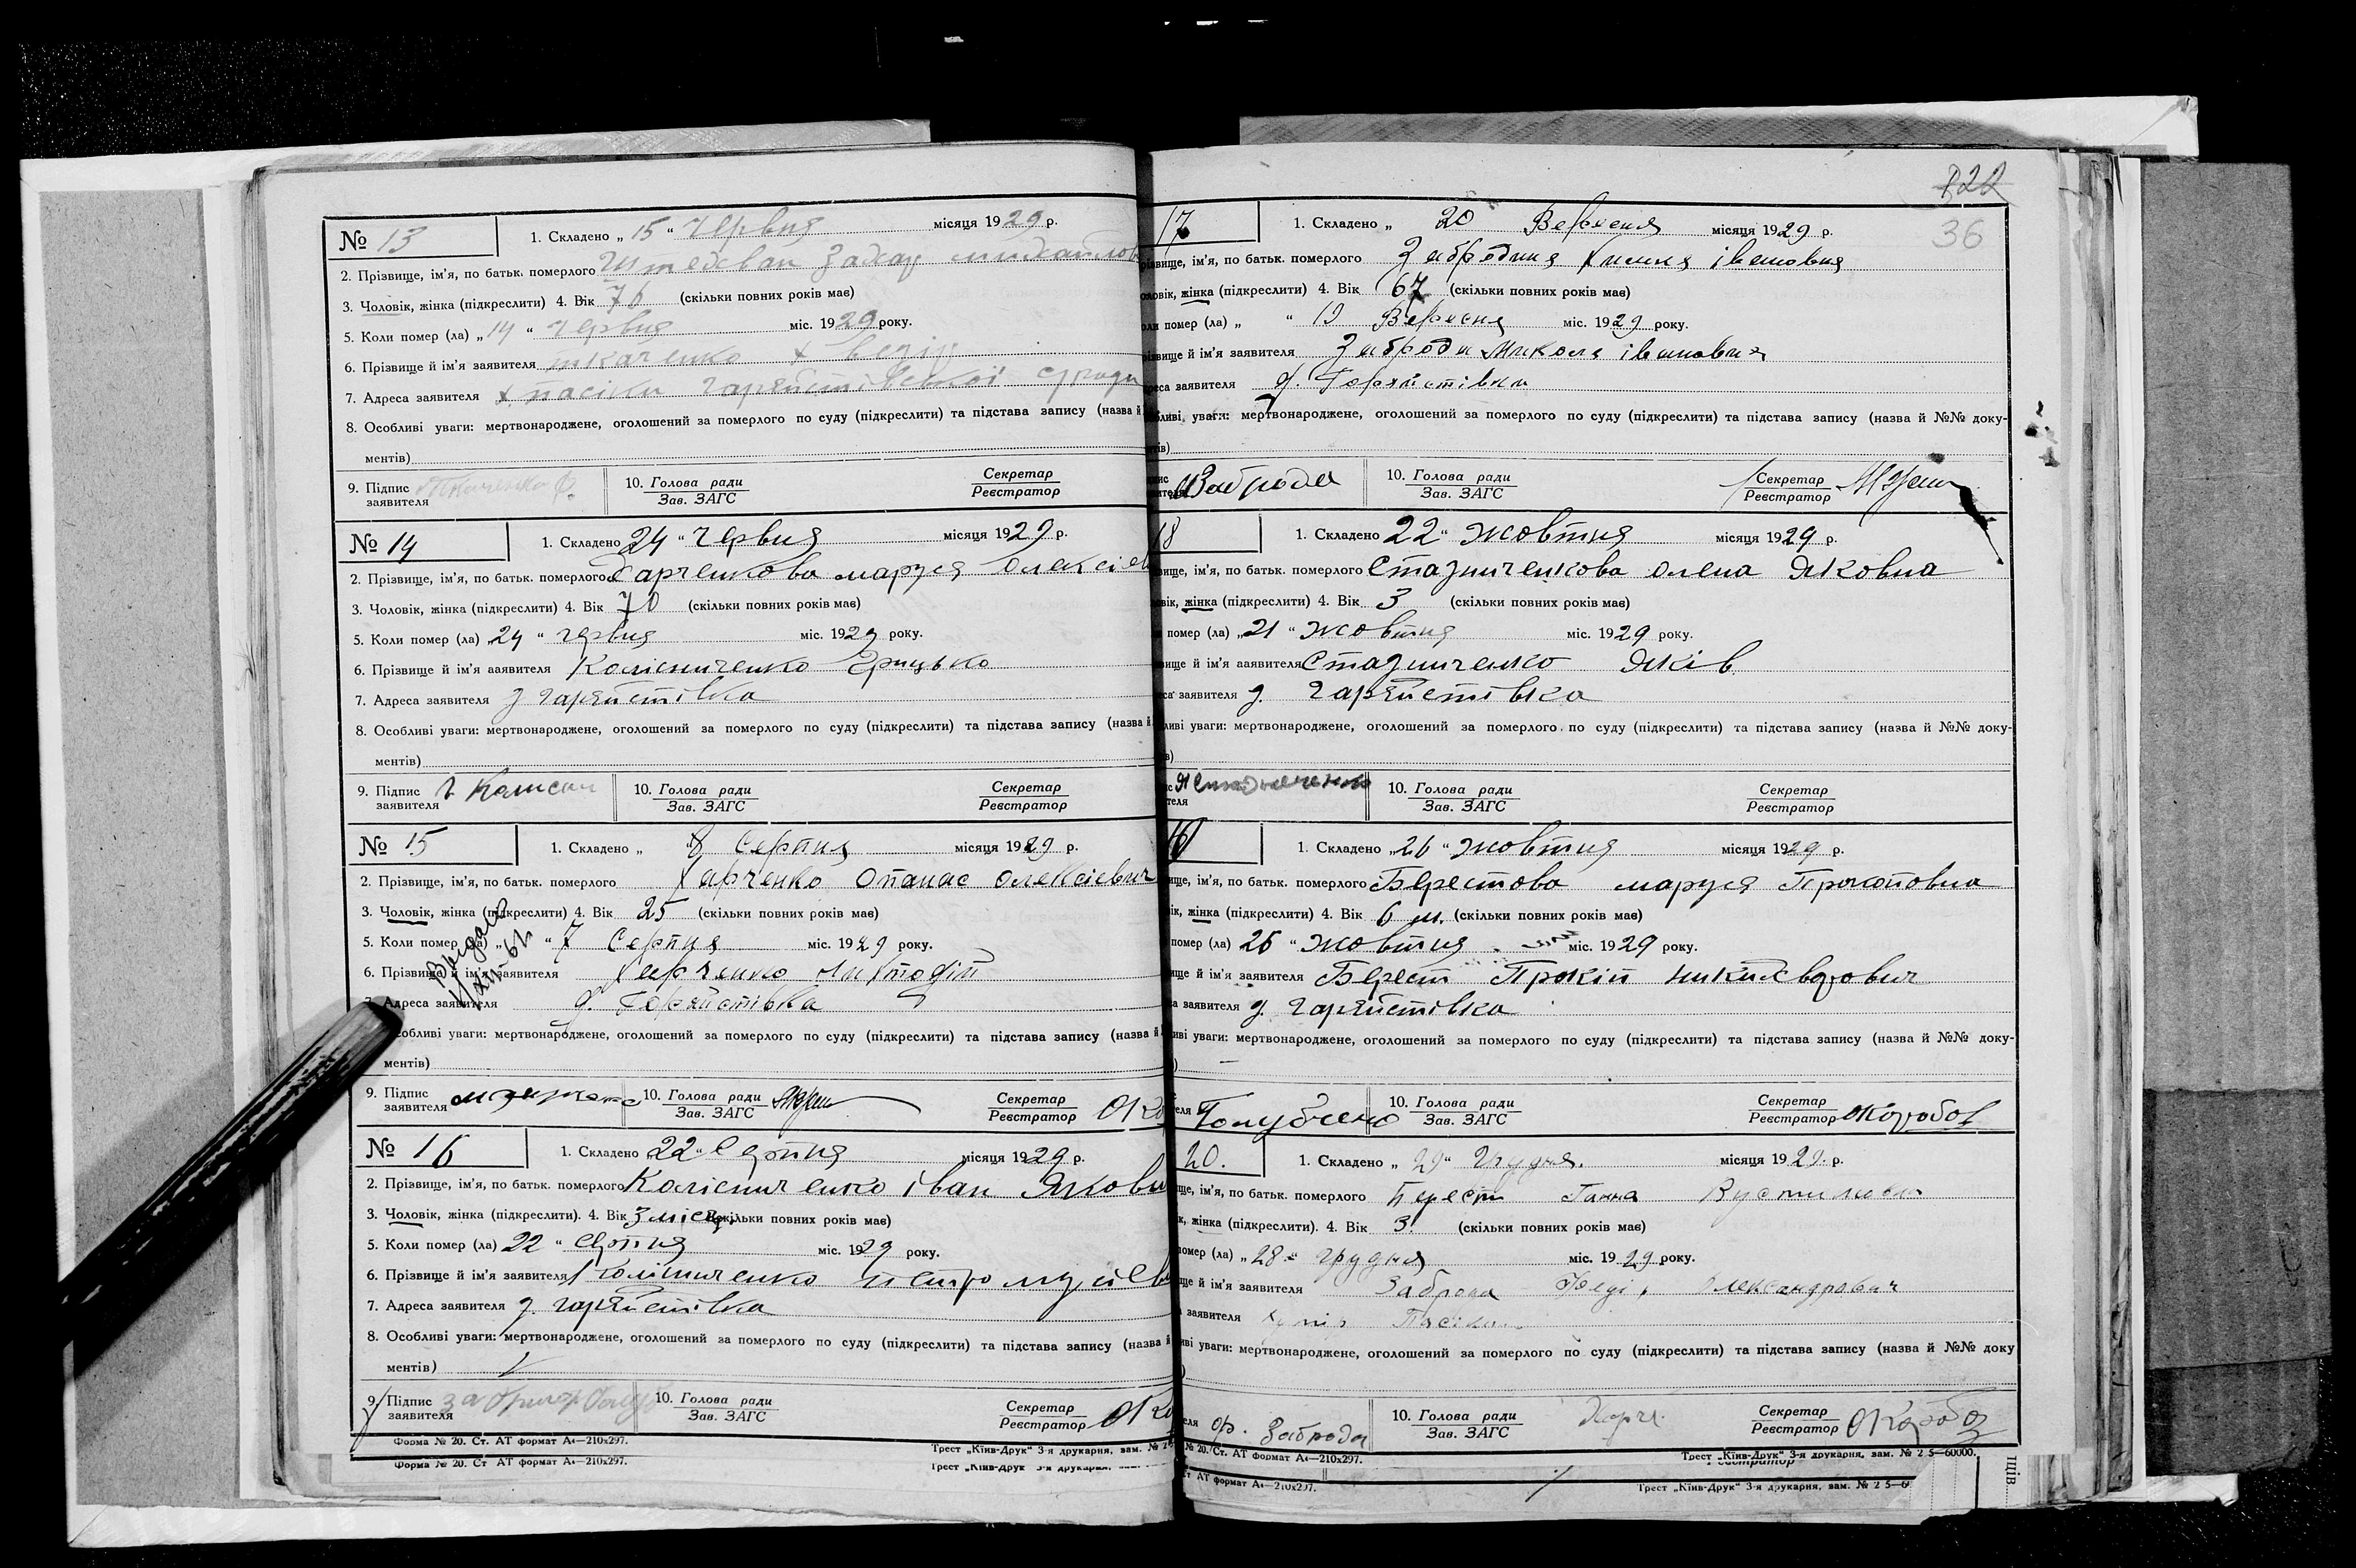 № 13 1. Складено „ 15 “ червня місяця 1929 р.
2. Прізвище, ім'я, по батьк. померлого Захар михайлов
3. Чоловік, жінка (підкреслити) 4. Вік 76 (скільки повних років має)
5. Коли помер (ла) „ 14 “ червня міс. 1929 року.
6. Прізвище й ім'я заявителя ткаченко
7. Адреса заявителя х. пасіки
8. Особливі уваги: мертвонароджене, оголошений за померлого по суду (підкреслити) та підстава запису (назва й
ментів)
9. Підпис заявителя Ткаченко Ф. 10. Голова ради Зав. ЗАГС Секретар Реєстратор
№ 14 1. Складено 24 “ червня місяця 1929 р.
2. Прізвище, ім'я, по батьк. померлого Харченкова маруся Олексіев
3. Чоловік, жінка (підкреслити) 4. Вік 70 (скільки повних років має)
5. Коли помер (ла) „ 24 “ червня міс. 1929 року.
6. Прізвище й ім'я заявителя Колісниченко Грицько
7. Адреса заявителя д гаряйстівка
8. Особливі уваги: мертвонароджене, оголошений за померлого по суду (підкреслити) та підстава запису (назва й
ментів)
9. Підпис заявителя Г. Колисни 10. Голова ради Зав. ЗАГС Секретар Реєстратор
№ 15 1. Складено „ 8 Серпня місяця 1929 р.
2. Прізвище, ім'я, по батьк. померлого Харченко Опанас Олексієвич
3. Чоловік, жінка (підкреслити) 4. Вік 25 (скільки повних років має)
5. Коли помер (ла) „ “ 7 Серпня міс. 1929 року.
6. Прізвище й ім'я заявителя Харченко
7. Адреса заявителя д. Горяйстівка
Особливі уваги: мертвонароджене, оголошений за померлого по суду (підкреслити) та підстава запису (назва й
ментів)
9. Підпис заявителя 10. Голова ради Зав. ЗАГС Секретар Реєстратор ОКо
№ 16 1. Складено 22 “ Серпня місяця 1929 р.
2. Прізвище, ім'я, по батьк. померлого Колісниченко іван Якови
3. Чоловік, жінка (підкреслити). 4. Вік 3 місяц (скільки повних років має)
5. Коли помер (ла) 22 “ серпня міс. 1929 року.
6. Прізвище й ім'я заявителя Колісниченко петро
7. Адреса заявителя д. гаряйстівка
8. Особливі уваги: мертвонароджене, оголошений за померлого по суду (підкреслити) та підстава запису (назва й
ментів)
9. Підпис заявителя 10. Голова ради Зав. ЗАГС Секретар Реєстратор ОКо
Форма № 20. Ст. АТ формат А4—210х297. Трест „Київ-Друк“ 3-я друкарня, зам. № 2
Форма № 20. Ст АТ формат А4—210х297.
222
36
17 1. Складено „ 20 Вересня місяця 1929 р.
ізвище, ім'я, по батьк. померлого Забродина івановна
ловік, жінка (підкреслити) 4. Вік 67 (скільки повних років має)
ли помер (ла) „ “ 19 Вересня міс. 1929 року.
ізвище й ім'я заявителя Заброда Микола іванович
реса заявителя д. Горяйстівка
бливі уваги: мертвонароджене, оголошений за померлого по суду (підкреслити) та підстава запису (назва й №№ доку-
тів)
Заброда 10. Голова ради Зав. ЗАГС Секретар Реєстратор
18 1. Складено 22 “ жовтня місяця 1929 р.
вище, ім'я, по батьк. померлого Стадниченкова олена Яковна
вік, жінка (підкреслити) 4. Вік 3 (скільки повних років має)
помер (ла) „ 21 “ жовтня міс. 1929 року.
вище й ім'я заявителя Стадниченко Яків
са заявителя д. гаряйстівка
ливі уваги: мертвонароджене, оголошений за померлого по суду (підкреслити) та підстава запису (назва й №№ доку-
ів)
Я Стадниченко 10. Голова ради Зав. ЗАГС Секретар Реєстратор
1. Складено „ 26 “ жовтня місяця 1929 р.
ище, ім'я, по батьк. померлого Берестова маруся Прокоповна
ік, жінка (підкреслити) 4. Вік 6 м. (скільки повних років має)
помер (ла) 26 “ жовтня міс. 1929 року.
ище й ім'я заявителя Берест Прокіп
а заявителя д. гаряйстівка
иві уваги: мертвонароджене, оголошений за померлого по суду (підкреслити) та підстава запису (назва й №№ доку-
)
еля Голубченко 10. Голова ради Зав. ЗАГС Секретар Реєстратор
20. 1. Складено „ 29 “ Грудня. місяця 1929. р.
ще, ім'я, по батьк. померлого Берест Ганна
к, жінка (підкреслити). 4. Вік 3. (скільки повних років має)
омер (ла) „ 28 “ грудня міс. 1929 року.
ще й ім'я заявителя Заброда Олександрович
заявителя хутір Пасіки
иві уваги: мертвонароджене, оголошений за померлого по суду (підкреслити) та підстава запису (назва й №№ доку
)
еля Ф. Заброда 10. Голова ради Зав. ЗАГС Харч. Секретар Реєстратор
№ 20. Ст. АТ формат А4—210х297. Трест „Київ-Друк“ 3-я друкарня, зам. № 2 5—60000.
т АТ формат А4—210х297. Трест „Київ-Друк“ 3-я друкарня, зам. № 2 5—6